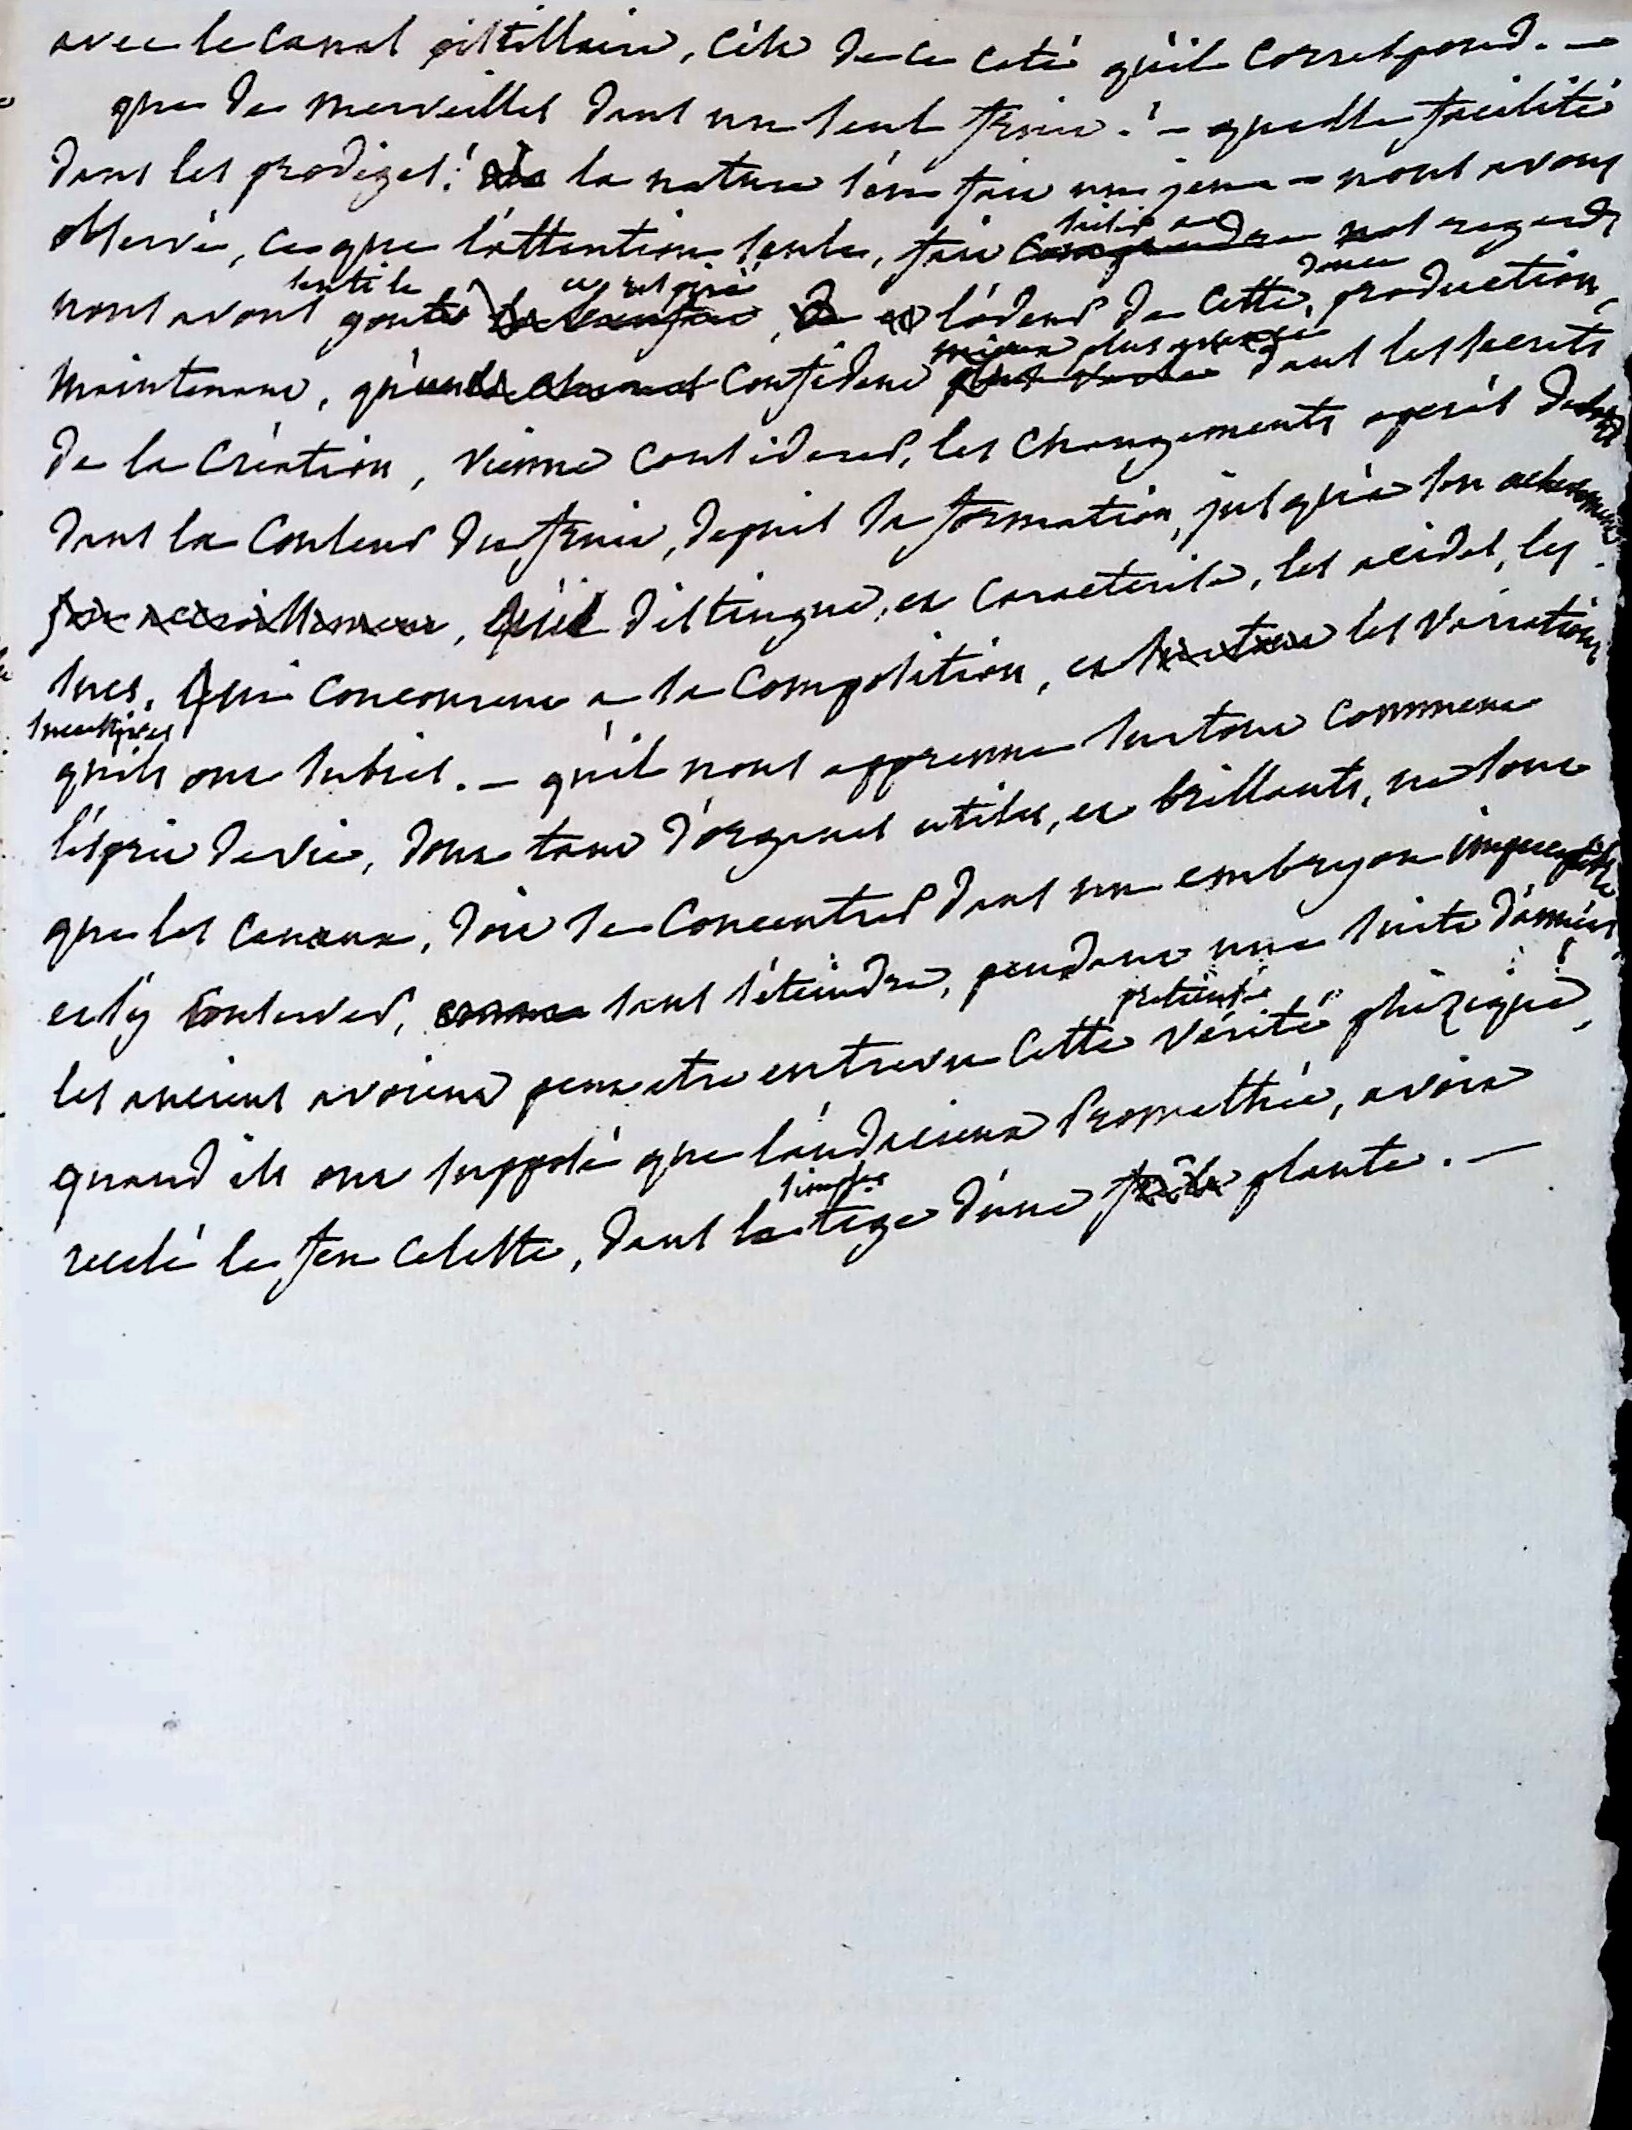 avec le canal pistillaire, c'est de ce coté qu'il correspond. —
que de merveilles dans un seul fruit ! — quelle facilité
dans les prodiges ! la nature s'en fait un jeu — nous avons
observé, ce que l'attention seule, fait saisir a nos regards
nous avons gouté et respiré l'odeur de cette douce production,
maintenant, qu'un confident dans les secrets
de la création, vienne considerer, les changements operés
dans la couleur du fruit, depuis sa formation, jusqu'a son
son accroissement, qu'il distingue, et caracterise, les acides, les
sucs, qui concourent a sa composition, et les variations
successives
qu'ils ont subies. — qu'il nous apprenne surtout comment
l'esprit de vie, dont tant d'organes utiles, et brillants, ne sont
que les canaux, doit se concentrer dans un embryon imperceptible
et s'y conserver, sans s'eteindre, pendant une suite d'années
les anciens avoient peut etre entrevu cette verité phizique,
quand ils ont supposé que l'audacieux Promethée, avoit
recelé le feu celeste, dans la simple tige d'une plante. —